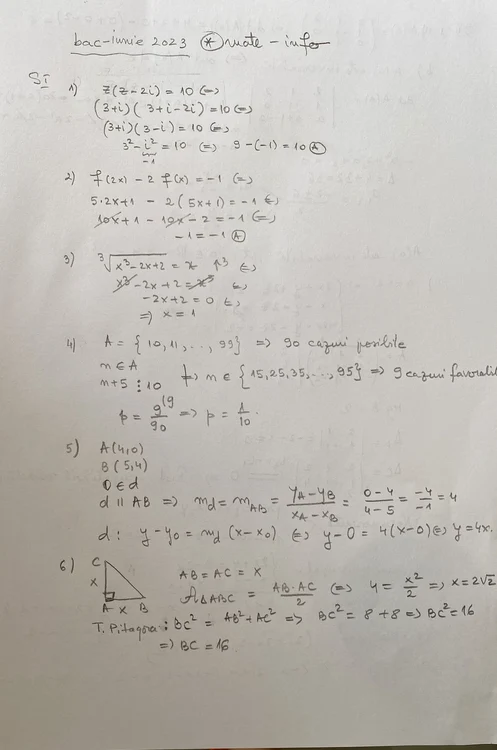 bac-iunie 2023 * mate-info
SI
1) z(z-2i) = 10 (=)
(3+i)(3+i-2i) = 10 (=)
(3+i)(3-i) = 10 (=)
3² - i² = 10 (=) 9-(-1) = 10 (A)
-1
2) f(2x) - 2 f(x) = -1 (=)
5·2x+1 - 2(5x+1) = -1 (=)
10x+1 - 10x - 2 = -1 (=)
-1 = -1 (A)
3) ³√(x³-2x+2) = x ↑3 (=)
x³ - 2x + 2 = x³ (=)
-2x+2 = 0 (=)
=) x = 1
4) A = {10, 11, ..., 99} => 90 cazuri posibile
n ∈ A
n+5 ⋮ 10 => n ∈ {15, 25, 35, ..., 95} => 9 cazuri favorabil
p = 9/90 (9 => p = 1/10.
5) A(4,0)
B(5,4)
O ∈ d
d || AB => m_d = m_AB = (y_A - y_B)/(x_A - x_B) = (0-4)/(4-5) = -4/-1 = 4
d: y - y₀ = m_d (x - x₀) (=) y - 0 = 4(x-0) (=) y = 4x.
6) C
x AB = AC = x
A x B A ΔABC = AB·AC/2 (=) 4 = x²/2 => x = 2√2
T. Pitagora: BC² = AB² + AC² => BC² = 8+8 => BC² = 16
=> BC = 16